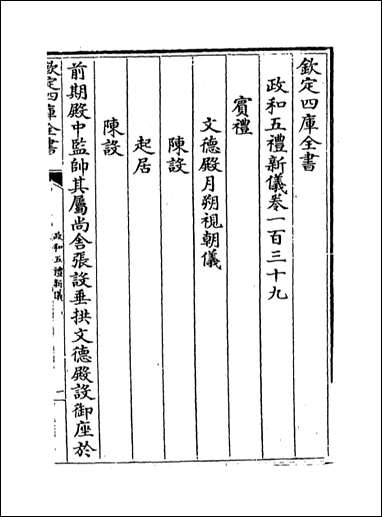 欽定四庫全書
政和五禮新儀卷一百三十九
賓禮
文德殿月朔視朝儀
陳設
起居
陳設
前期殿中監帥其屬尚舍張設垂拱文德殿設御座於
欽定四庫全書
政和五禮新儀
一